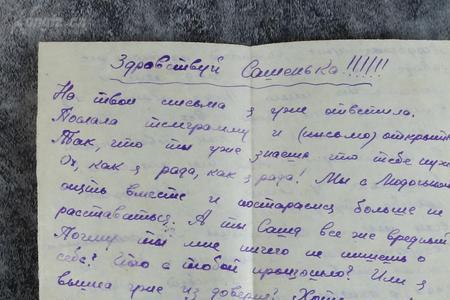 Здравствуй Сашенька!!!!!!
На твои письма я уже ответила.
Послала телеграмму и (письмо) открытк
Так, что ты уже знаешь что тебе нуж
Ох, как я рада, как я рада! Мы с Людочкой
опять вместе и постараемся больше не
расставаться. А ты Саша все же вредный
Почему ты мне ничего не пишешь о
себе? Что с тобой произошло? Или я
вышла уже из доверия? Хотя